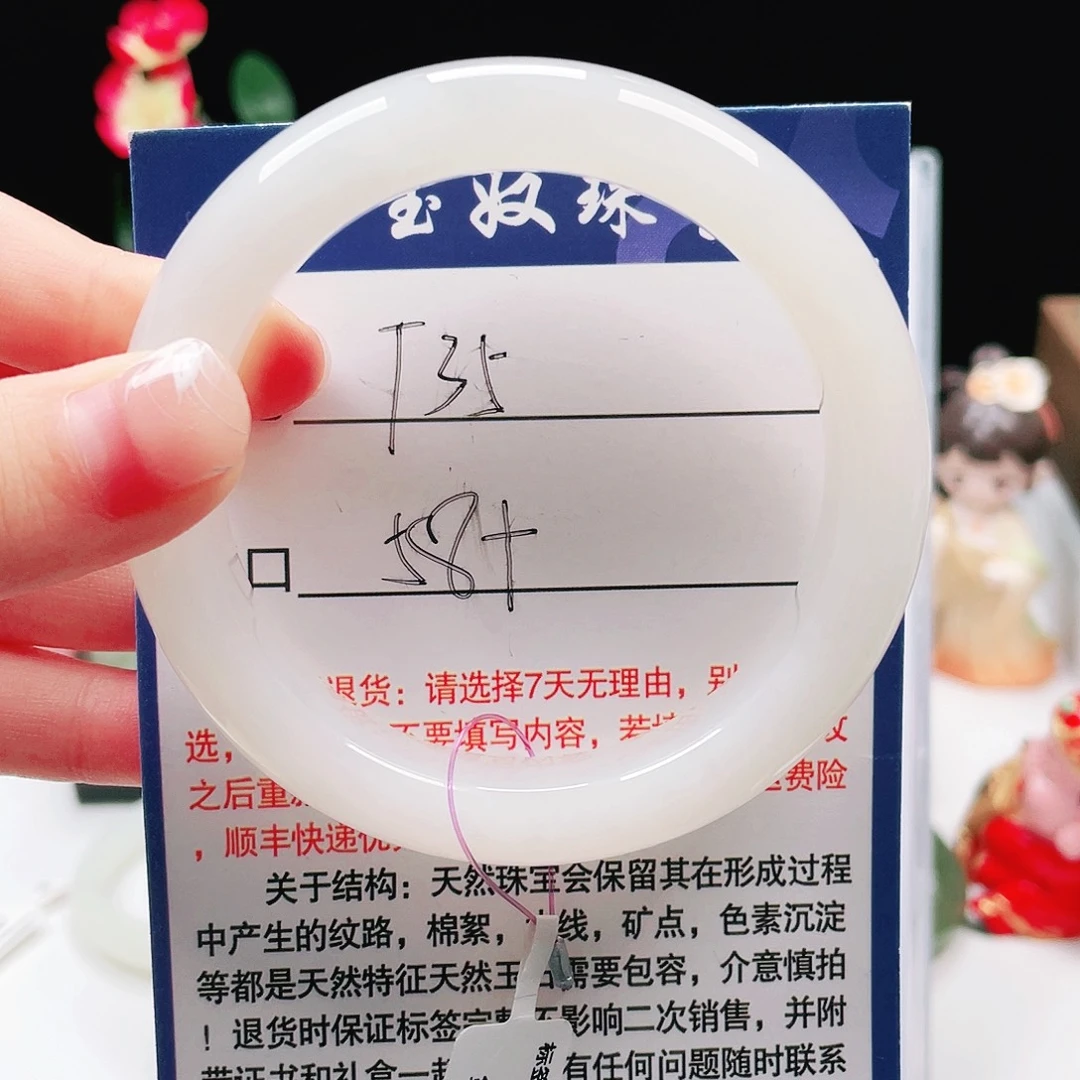 玉奴珠
T35
58+
口
退货：请选择7天无理由，别
选，不要填写内容，若填
之后重 运费险
，顺丰快递优
关于结构：天然珠宝会保留其在形成过程
中产生的纹路，棉絮，线，矿点，色素沉淀
等都是天然特征天然玉石需要包容，介意慎拍
！退货时保证标签完整不影响二次销售，并附
带证书和礼盒一起 有任何问题随时联系